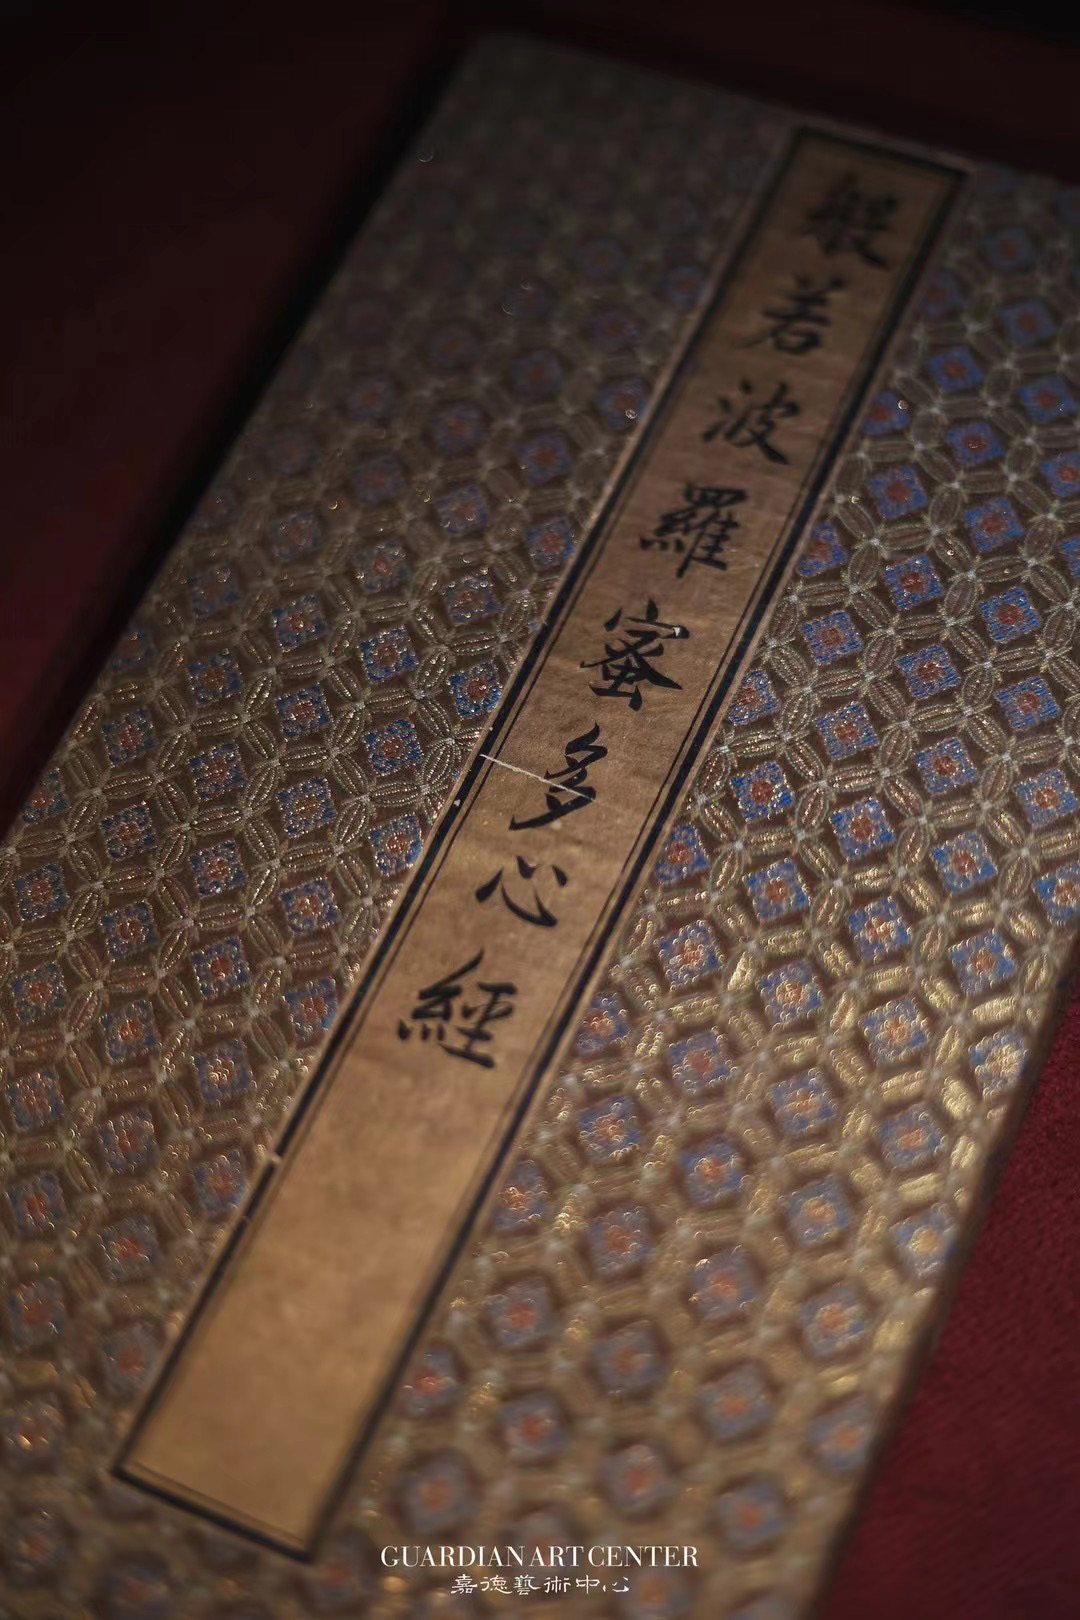 般若波羅蜜多心經
GUARDIAN ART CENTER
嘉德藝術中心